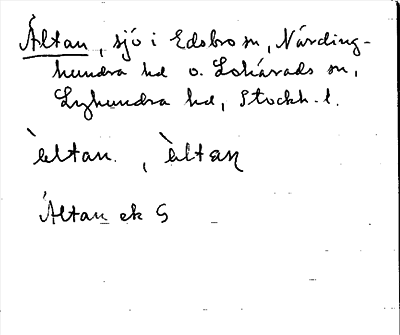 Áltan, sjö i Edsbro sn, Närding-
hundra hd o. Lohärads sn,
Lyhundra hd, Stockh. l.
`eltan. , `eltan
Áltan ek S